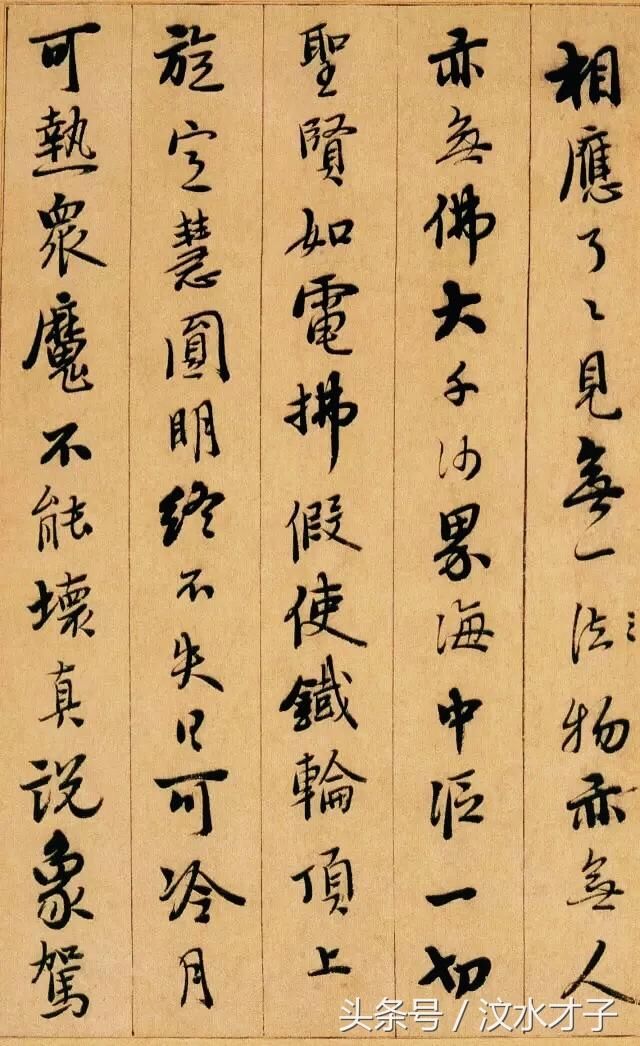 相應了〻見無一法物亦無人
亦無佛大千沙界海中漚一切
聖賢如電拂假使鐵輪頂上
旋定慧圓明終不失日可冷月
可熱衆魔不能壞真說象駕
头条号 / 汶水才子